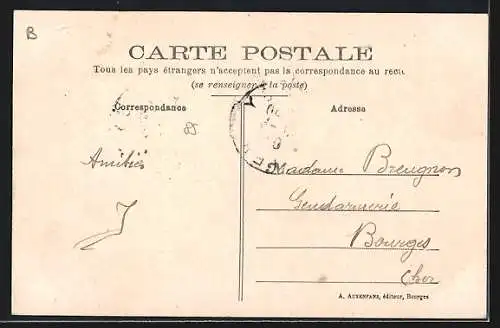 B
CARTE POSTALE
Tous les pays étrangers n'acceptent pas la correspondance au recto
(se renseigner à la poste)
Correspondance
Adresse
Amitiés
J
Madame Breugnon
Gendarmerie
Bourges
Cher
A. AUXENFANS, éditeur, Bourges